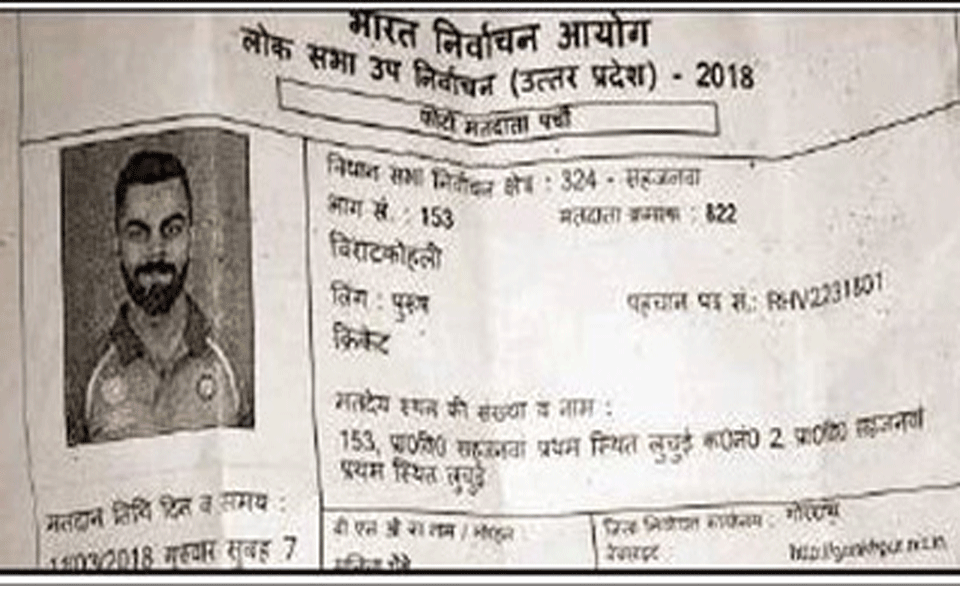 भारत निर्वाचन आयोग
लोक सभा उप निर्वाचन (उत्तर प्रदेश) - 2018
फोटो मतदाता पर्ची
विधान सभा निर्वाचन क्षेत्र : 324 - सहजनवा
भाग सं. : 153 मतदाता क्रमांक : 822
विराटकोहली
लिंग : पुरुष पहचान पत्र सं.: RHV2231801
क्रिकेट
मतदेय स्थल की संख्या व नाम :
153, प्रा0वि0 सहजनवा प्रथम स्थित लुचुई क0नं0 2, प्रा0वि0 सहजनवा
प्रथम स्थित लुचुई
मतदान तिथि दिन व समय :
/03/2018 सुबह 7
बी एल ओ का नाम /
जिला निर्वाचन कार्यालय : गोरखपुर
वेबसाइट